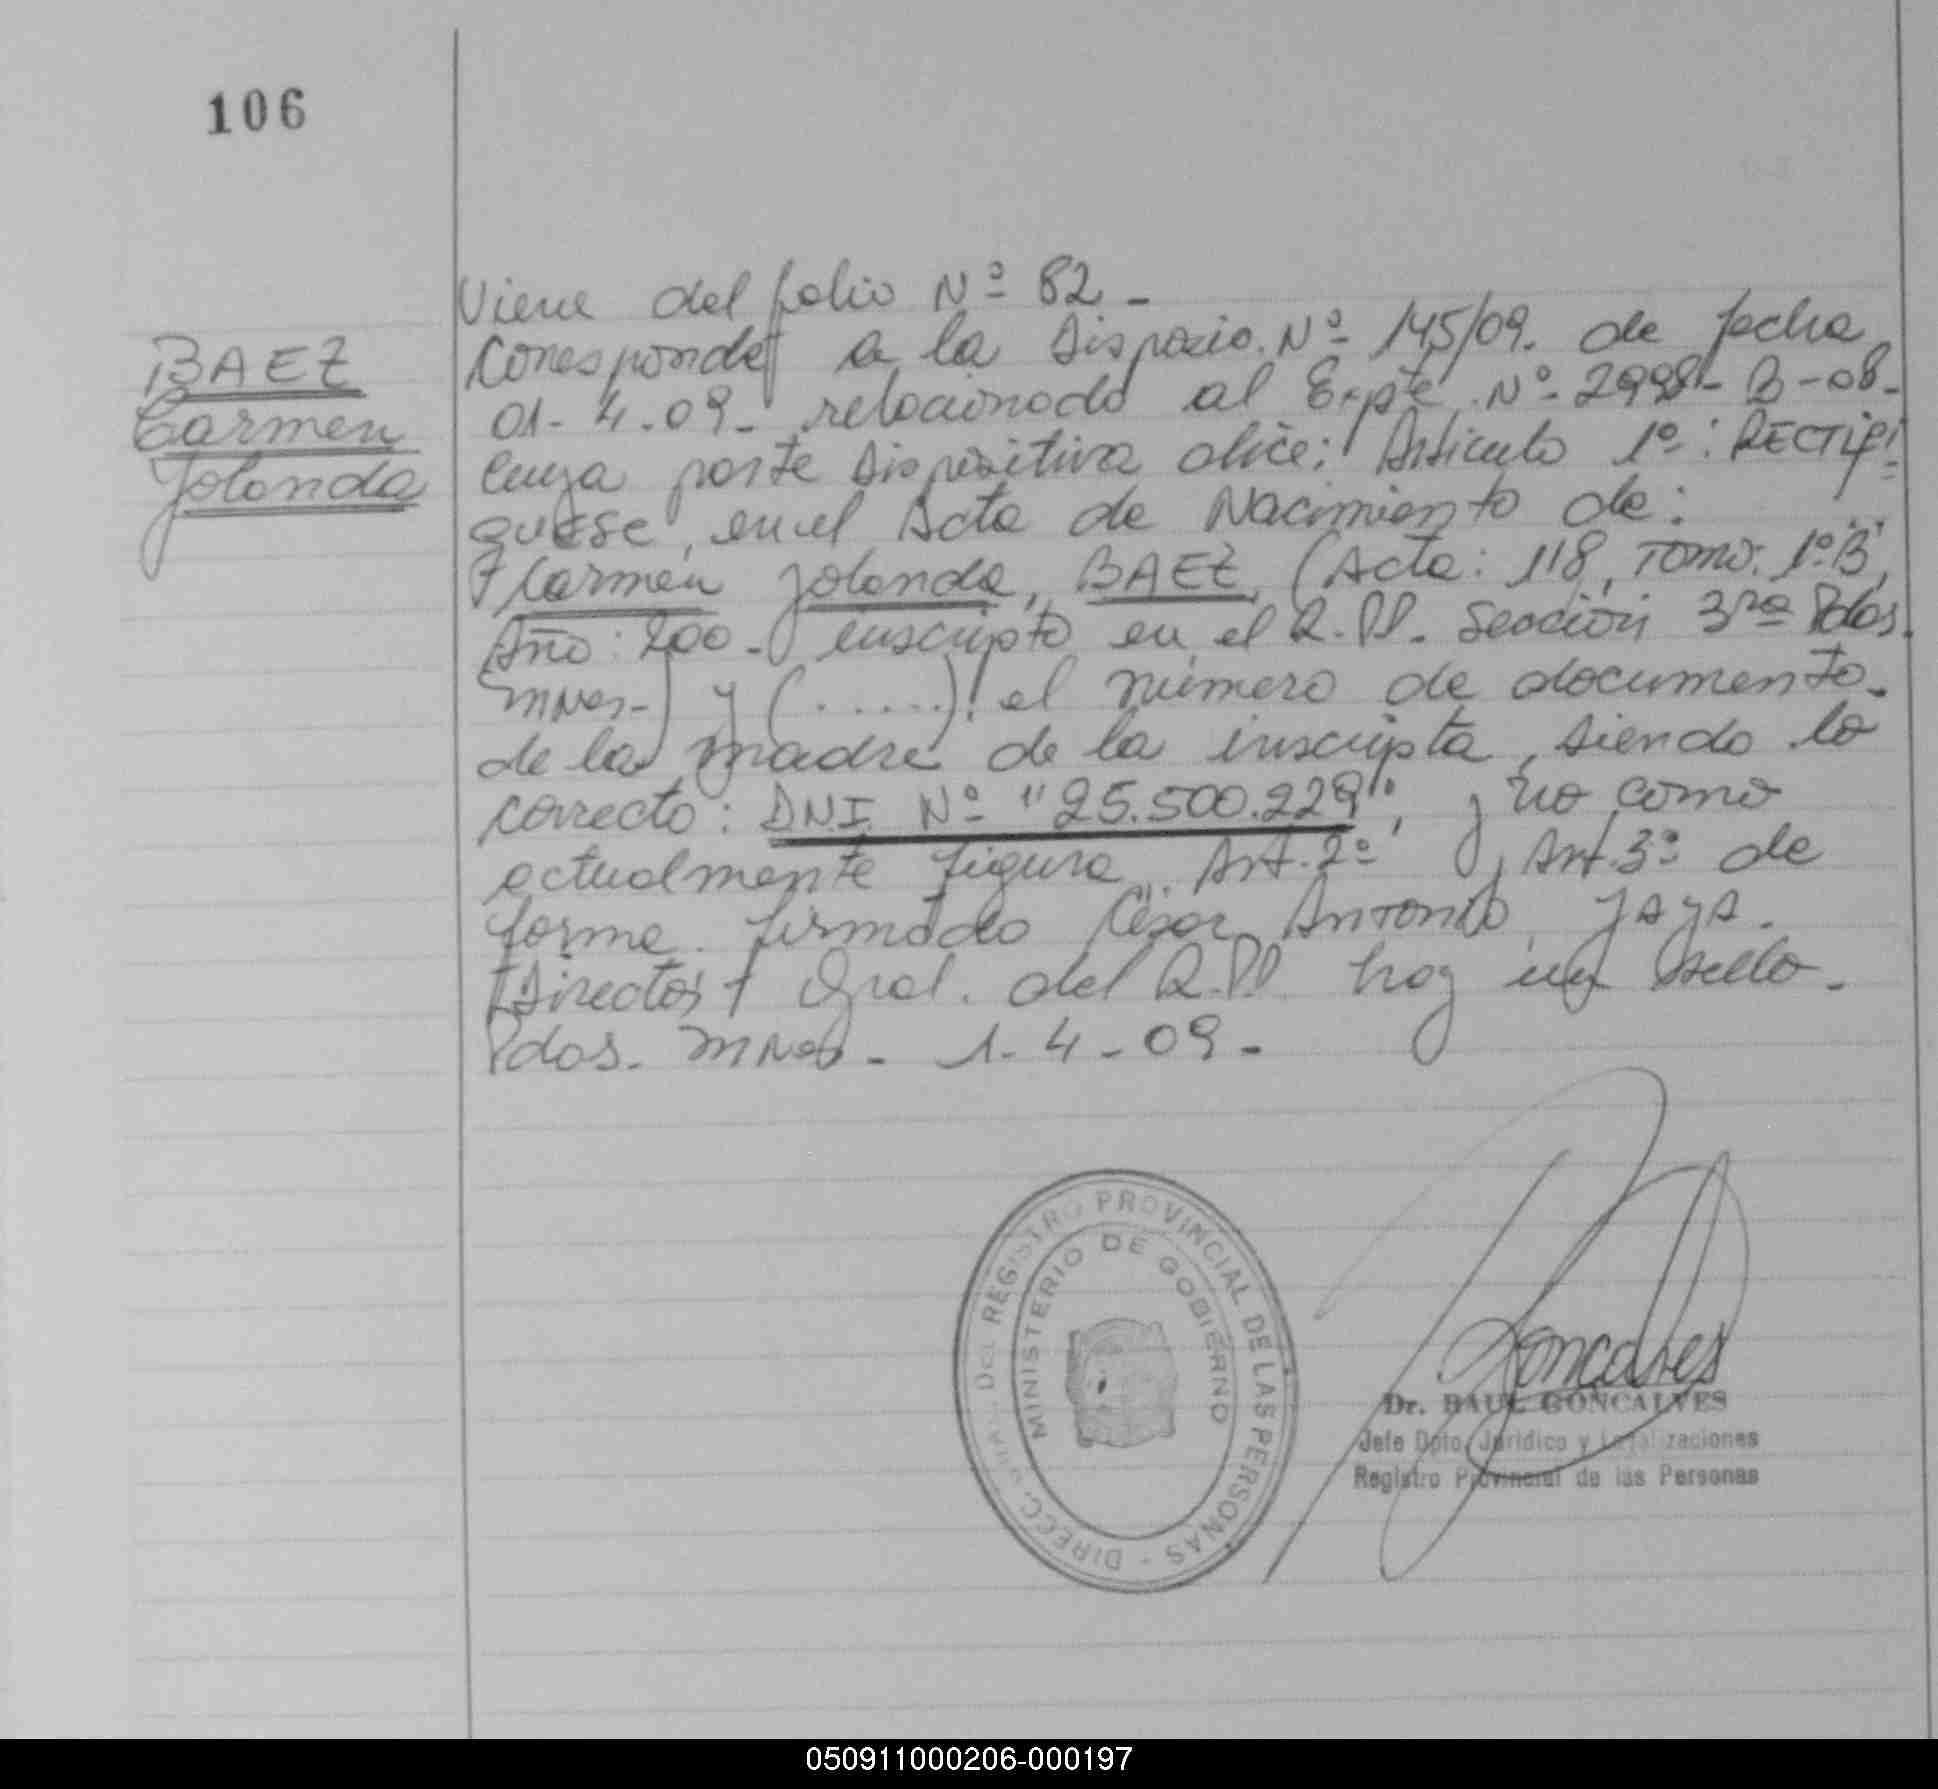 106
BAEZ
Carmen
Jolanda
Viene del folio Nº 82 -
Corresponde a la Disposic. Nº 145/09. de fecha
01-4-09- relacionado al Expte Nº 2998-B-08-
cuya parte dispositiva dice: Articulo 1º: RECTIFI-
QUESE, en el Acta de Nacimiento de:
Carmen Jolanda, BAEZ, (Acta: 118, Tomo: 1º "B",
Año: 200- inscripto en el R.PP. Sección 3ra Pdas.
Mnes-) y (.....) el número de documento-
de la madre de la inscripta, siendo lo
correcto: DNI Nº "25.500.229", y no como
actualmente figura. Art. 2º y Art. 3º de
forma. firmado César Antonio, JAYA.
Director Gral. del R.PP. hay un sello-
Pdas. Mnes- 1-4-09-
DIRECC. GRAL. DEL REGISTRO PROVINCIAL DE LAS PERSONAS -
MINISTERIO DE GOBIERNO
Goncalves
Dr. RAUL GONCALVES
Jefe Dpto. Jurídico y Legalizaciones
Registro Provincial de las Personas
050911000206-000197